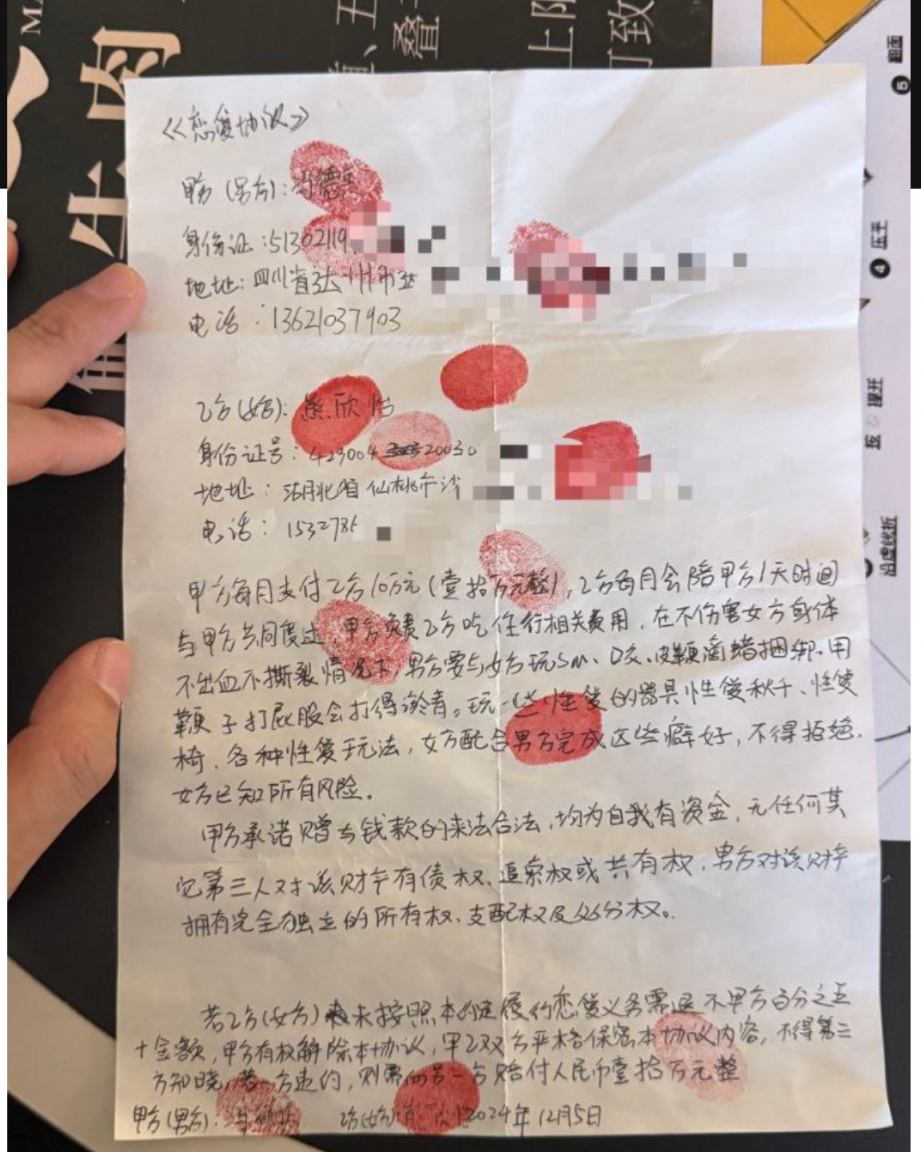 《恋爱协议》
甲方(男方):冯德
身份证:51302119
地址:四川省达州市
电话:13621037903
乙方(女方):熊欣怡
身份证号:429004 20030
地址:湖北省仙桃市沙
电话:1532785
甲方每月支付乙方10万元(壹拾万元整),乙方每月会陪甲方1天时间
与甲方共同度过,甲方负责乙方吃住行相关费用,在不伤害女方身体
不出血不撕裂情况下,男方要与女方玩SM、口交、皮鞭滴蜡捆绑、用
鞭子打屁股会打得淤青。玩一些性爱的器具性爱秋千、性爱
椅、各种性爱玩法,女方配合男方完成这些癖好,不得拒绝.
女方已知所有风险。
甲方承诺赠与钱款的来法合法,均为自我有资金,无任何其
它第三人对该财产有债权、追索权或共有权,男方对该财产
拥有完全独立的所有权、支配权及处分权。
若乙方(女方)未按照本约定履约恋爱义务需退还甲方百分之五
十金额,甲方有权解除本协议,甲乙双方严格保密本协议内容,不得第三
方知晓,若一方违约,则需向另一方赔付人民币壹拾万元整
甲方(男方): 乙方(女方): 2024年12月5日
生肉
叠
上
可致
MA
5
4 压平
捏开
沿虚线折